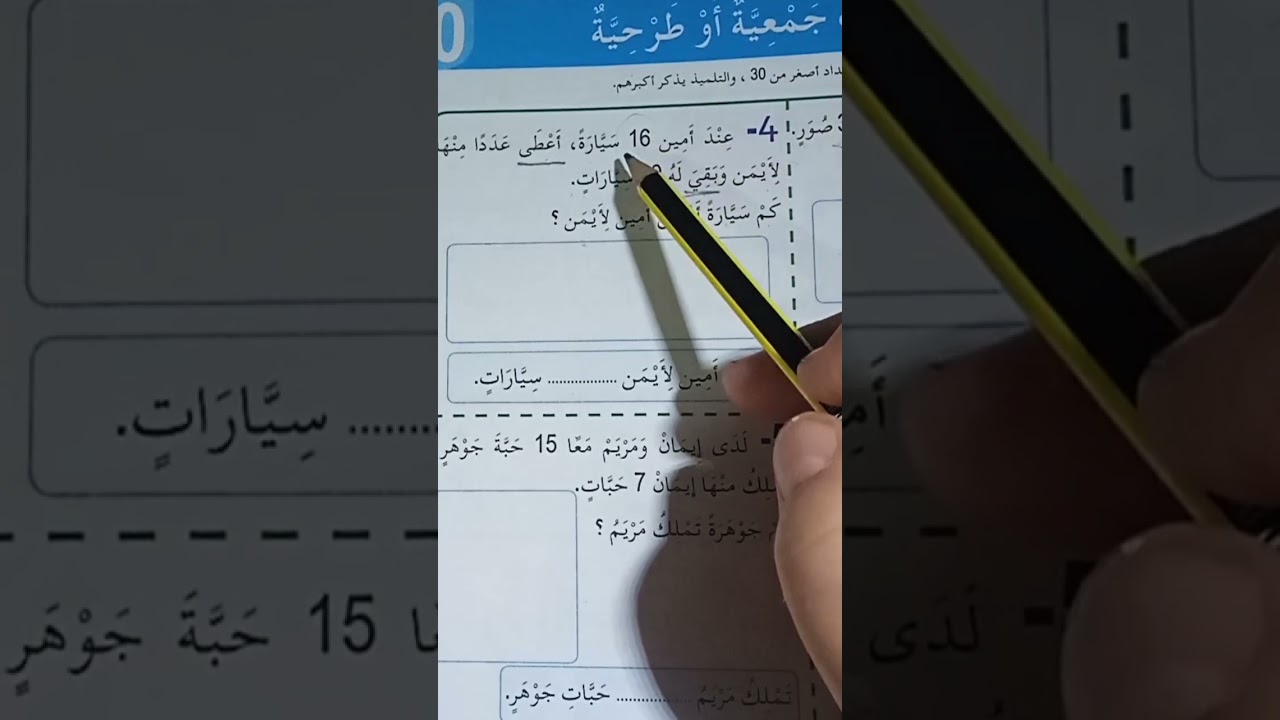 جَمْعِيَّةٌ أَوْ طَرْحِيَّةٌ
0
أصغر من 30 ، والتلميذ يذكر أكبرهم.
صُوَرٍ.
4- عِنْدَ أَمِين 16 سَيَّارَةً، أَعْطَى عَدَدًا مِنْهَا
لِأَيْمَن وَبَقِيَ لَهُ سِيَّارَاتٍ.
كَمْ سَيَّارَةً أمِين لِأَيْمَن ؟
أَمِين لِأَيْمَن ................. سِيَّارَاتٍ.
- لَدَى إيمَانْ وَمَرْيَمْ مَعًا 15 حَبَّةَ جَوْهَرٍ
مِنْهَا إيمَانْ 7 حَبَّاتٍ.
جَوْهَرَةً تَمْلِكُ مَرْيَمُ ؟
تَمْلِكُ مَرْيَمُ ................. حَبَّاتِ جَوْهَرٍ.